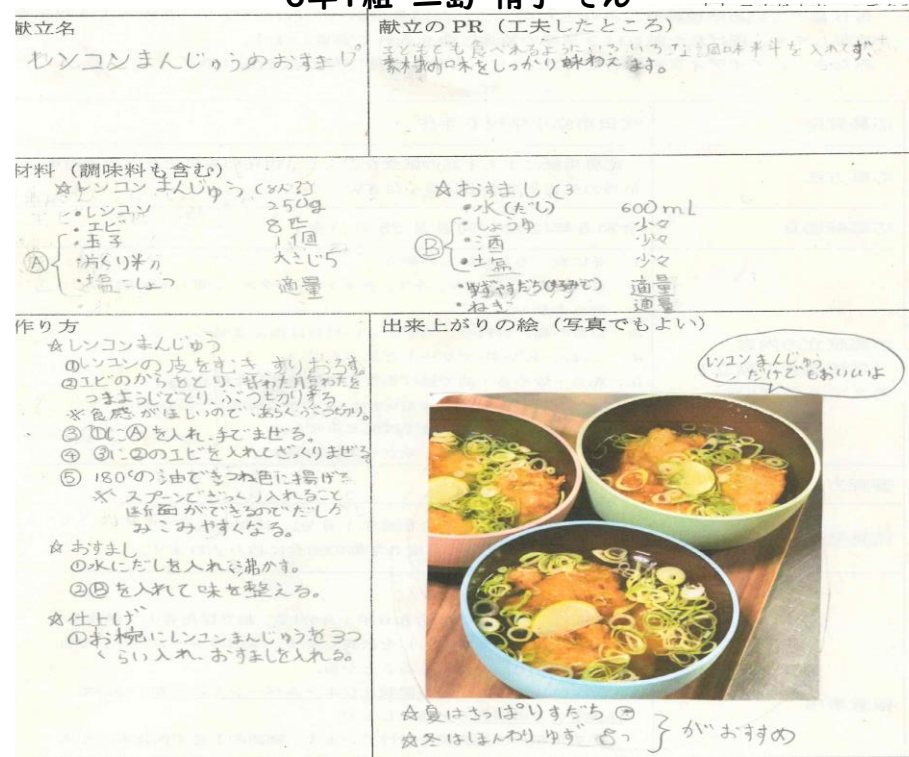 献立名
レンコンまんじゅうのおすまし
献立のPR（工夫したところ）
こどもでも食べれるようにいろいろな調味料を入れてず、
素材の味をしっかり味わえます。
材料（調味料も含む）
☆レンコンまんじゅう
・レンコン 250g
・エビ 8匹
Ⓐ ・玉子 1個
・片くり米分 大さじ5
・塩こしょう 適量
☆おすまし
・水（だし） 600mL
Ⓑ ・しょうゆ 少々
・酒 少々
・塩 少々
適量
・ねぎ 適量
作り方
☆レンコンまんじゅう
①レンコンの皮をむき、すりおろす。
②エビのからをとり、
つまようじでとり、ぶつぎりする
※食感がほしいので、あらくぶつぎり。
③①にⒶを入れ、手でまぜる。
④③に②のエビを入れてざっくりまぜる
⑤180℃の油できつね色に揚げる
※スプーンでざっくり入れること
断面ができるのでだしが
みこみやすくなる。
☆おすまし
①水にだしを入れ沸かす。
②Ⓑを入れて味を整える。
☆仕上げ
①お椀にレンコンまんじゅうを3つ
くらい入れ、おすましを入れる。
出来上がりの絵（写真でもよい）
レンコンまんじゅう
だけでもおいしいよ
☆夏はさっぱりすだち
☆冬はほんわりゆず
がおすすめ